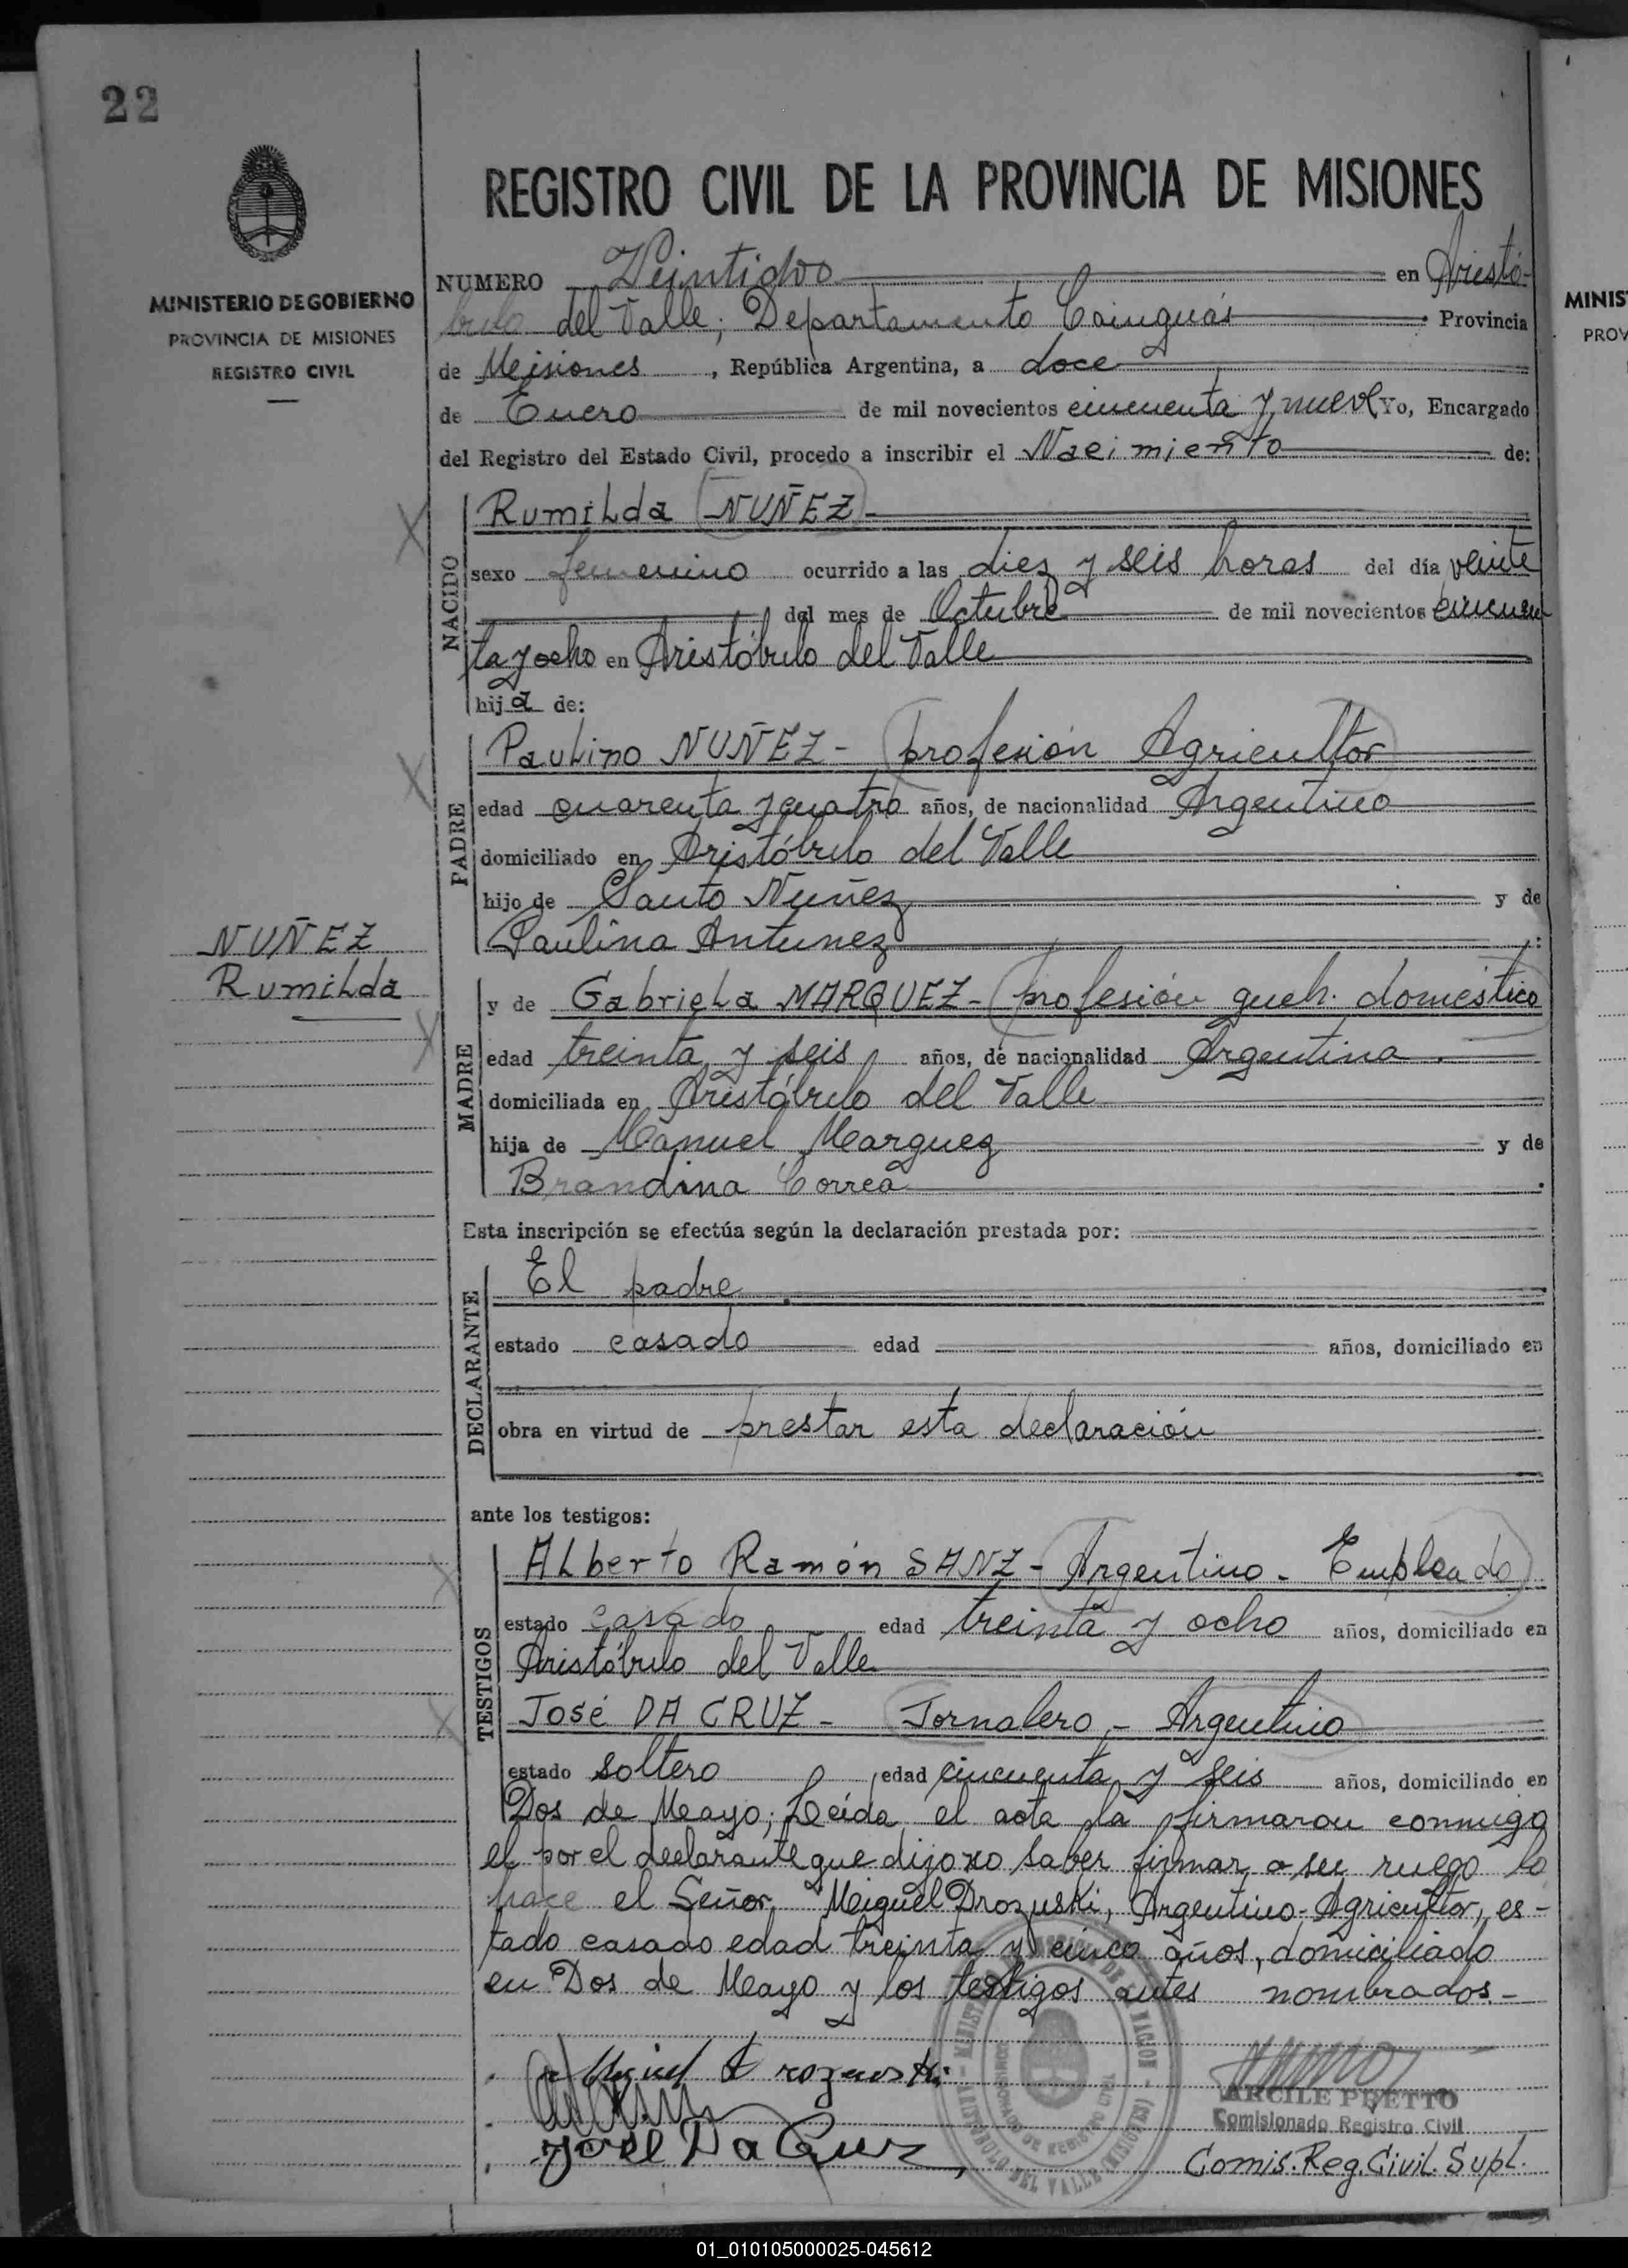 22
MINISTERIO DE GOBIERNO
PROVINCIA DE MISIONES
REGISTRO CIVIL
REGISTRO CIVIL DE LA PROVINCIA DE MISIONES
NUMERO Veintidos en Aristó-
bulo del Valle, Departamento Cainguás Provincia
de Misiones, República Argentina, a doce
de Enero de mil novecientos cincuenta y nueve Yo, Encargado
del Registro del Estado Civil, procedo a inscribir el Nacimiento de:
NACIDO
Rumilda NUÑEZ-
sexo femenino ocurrido a las diez y seis horas del día veinte
del mes de Octubre de mil novecientos cincuen
ta y ocho en Aristóbulo del Valle
hija de:
PADRE
Paulino NUÑEZ- profesión Agricultor
edad cuarenta y cuatro años, de nacionalidad Argentino
domiciliado en Aristóbulo del Valle
hijo de Santo Nuñez y de
Paulina Antunez
NUÑEZ
Rumilda
MADRE
y de Gabriela MARQUEZ- profesión queh. domestico
edad treinta y seis años, de nacionalidad Argentina.
domiciliada en Aristóbulo del Valle
hija de Manuel Marquez y de
Brandina Correa
Esta inscripción se efectúa según la declaración prestada por:
DECLARANTE
El padre
estado casado edad años, domiciliado en
obra en virtud de prestar esta declaración
ante los testigos:
TESTIGOS
Alberto Ramón SANZ- Argentino- Empleado
estado casado edad treinta y ocho años, domiciliado en
Aristóbulo del Valle
José DA CRUZ- Jornalero- Argentino
estado soltero edad cincuenta y seis años, domiciliado en
Dos de Mayo; Leída el acta la firmaron conmigo
el por el declarante que dijo no saber firmar a su ruego lo
hace el Señor Miguel Drozuski, Argentino-Agricultor, es-
tado casado edad treinta y cinco años, domiciliado
en Dos de Mayo y los testigos antes nombrados.-
José Da Cruz
ARCILE PRETTO
Comisionado Registro Civil
Comis. Reg. Civil. Supl.
MINIS
PROV
01_010105000025-045612